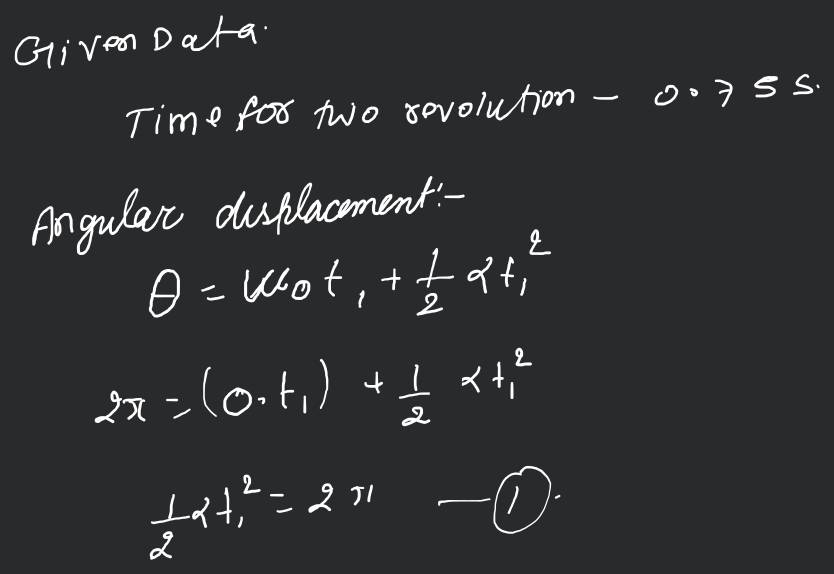 Given Data.
Time for two revolution - 0.75 s.
Angular displacement:-
θ = ω₀t₁ + 1/2 αt₁²
2π = (0.t₁) + 1/2 αt₁²
1/2 αt₁² = 2π —①.